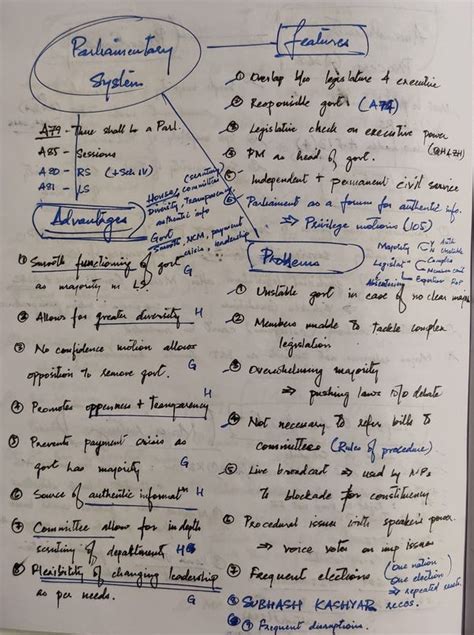 Parliamentary
System
Features
A79 - There shall be a Parl.
A85 - Sessions
A80 - RS (+Sch IV)
A81 - LS
① Overlap b/w legislature & executive
② Responsible govt. (A75)
③ Legislative check on executive power
④ PM as head of govt.
⑤ Independent + permanent civil service
⑥ Parliament as a forum for authentic info.
⇒ Privilege motions (105)
House (scrutiny
committees)
Diversity, Transparency
authentic info
Govt
Smooth, NCM, payment
crisis, leadership
Advantages
① Smooth functioning of govt
as majority in LS. G
② Allows for greater diversity H
③ No confidence motion allows
opposition to remove govt. G
④ Promotes openness + transparency H
⑤ Prevents payment crisis as
govt has majority G
⑥ Source of authentic informatn H
⑦ Committee allow for in depth
scrutiny of departments H
⑧ Flexibility of changing leadership
as per needs. G
Problems
Majority
Unstable
Legislatn
Complex
① Unstable govt in case of no clear major
② Members unable to tackle complex
legislation
③ Overwhelming majority
⇒ pushing laws w/o debate
④ Not necessary to refer bills to
committees (Rules of procedure)
⑤ Live broadcast ⇒ used by MPs
to blockade for constituency
⑥ Procedural issues with speaker's power.
⇒ voice votes on imp issues
⑦ Frequent elections (one nation
one election)
⇒ repeated
⑧ SUBHASH KASHYAP recos.
⑨ Frequent disruptions.